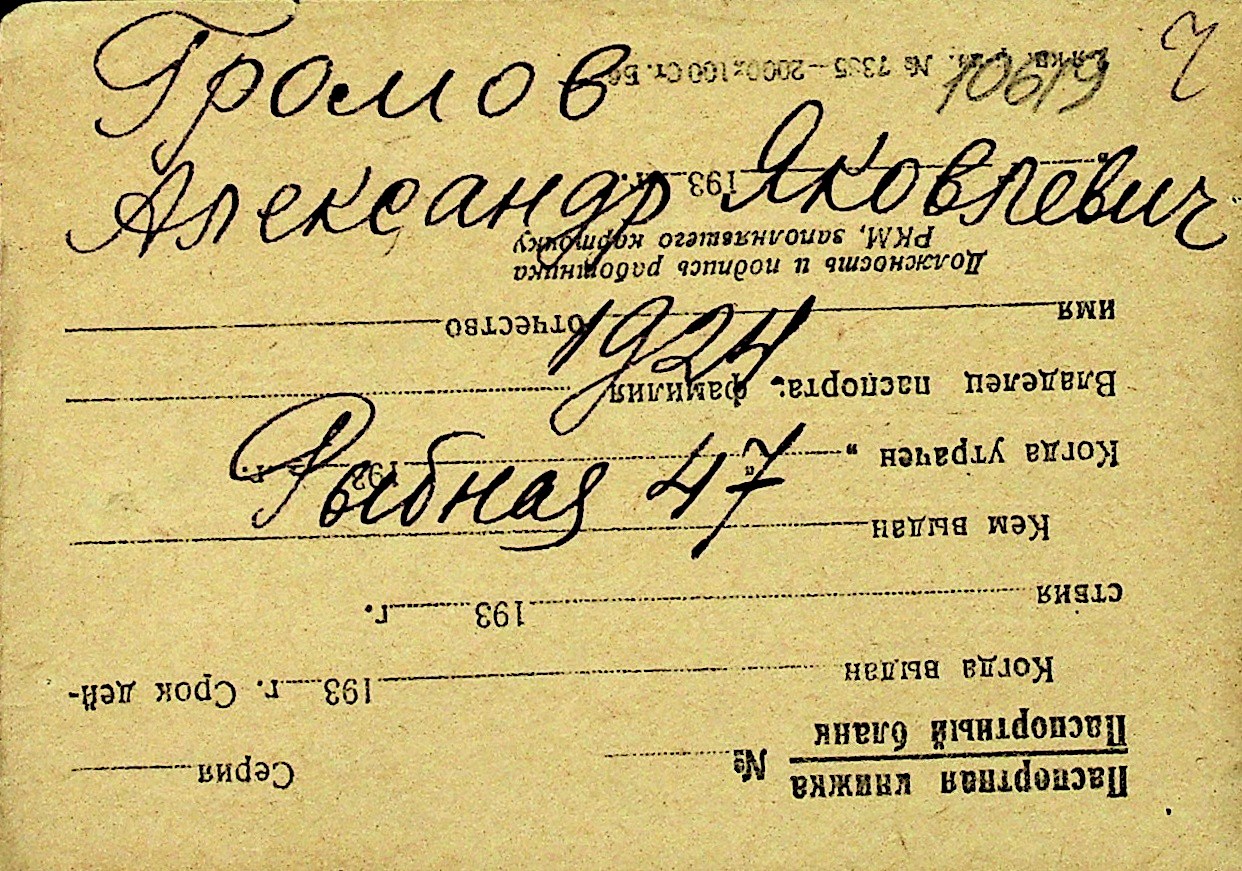 Громов
10619
Александр Яковлевич
1924
Рыбная 47
Паспортная книжка № Серия
Паспортный бланк
Когда выдан 193 г. Срок дей-
ствия 193 г.
Кем выдан
Когда утрачен „ " 193 г.
Владелец паспорта: фамилия
имя отчество
Должность и подпись работника
РКМ, заполнявшего карточку
" 193 г.
№ 7335—2000х100 Ст. Бб